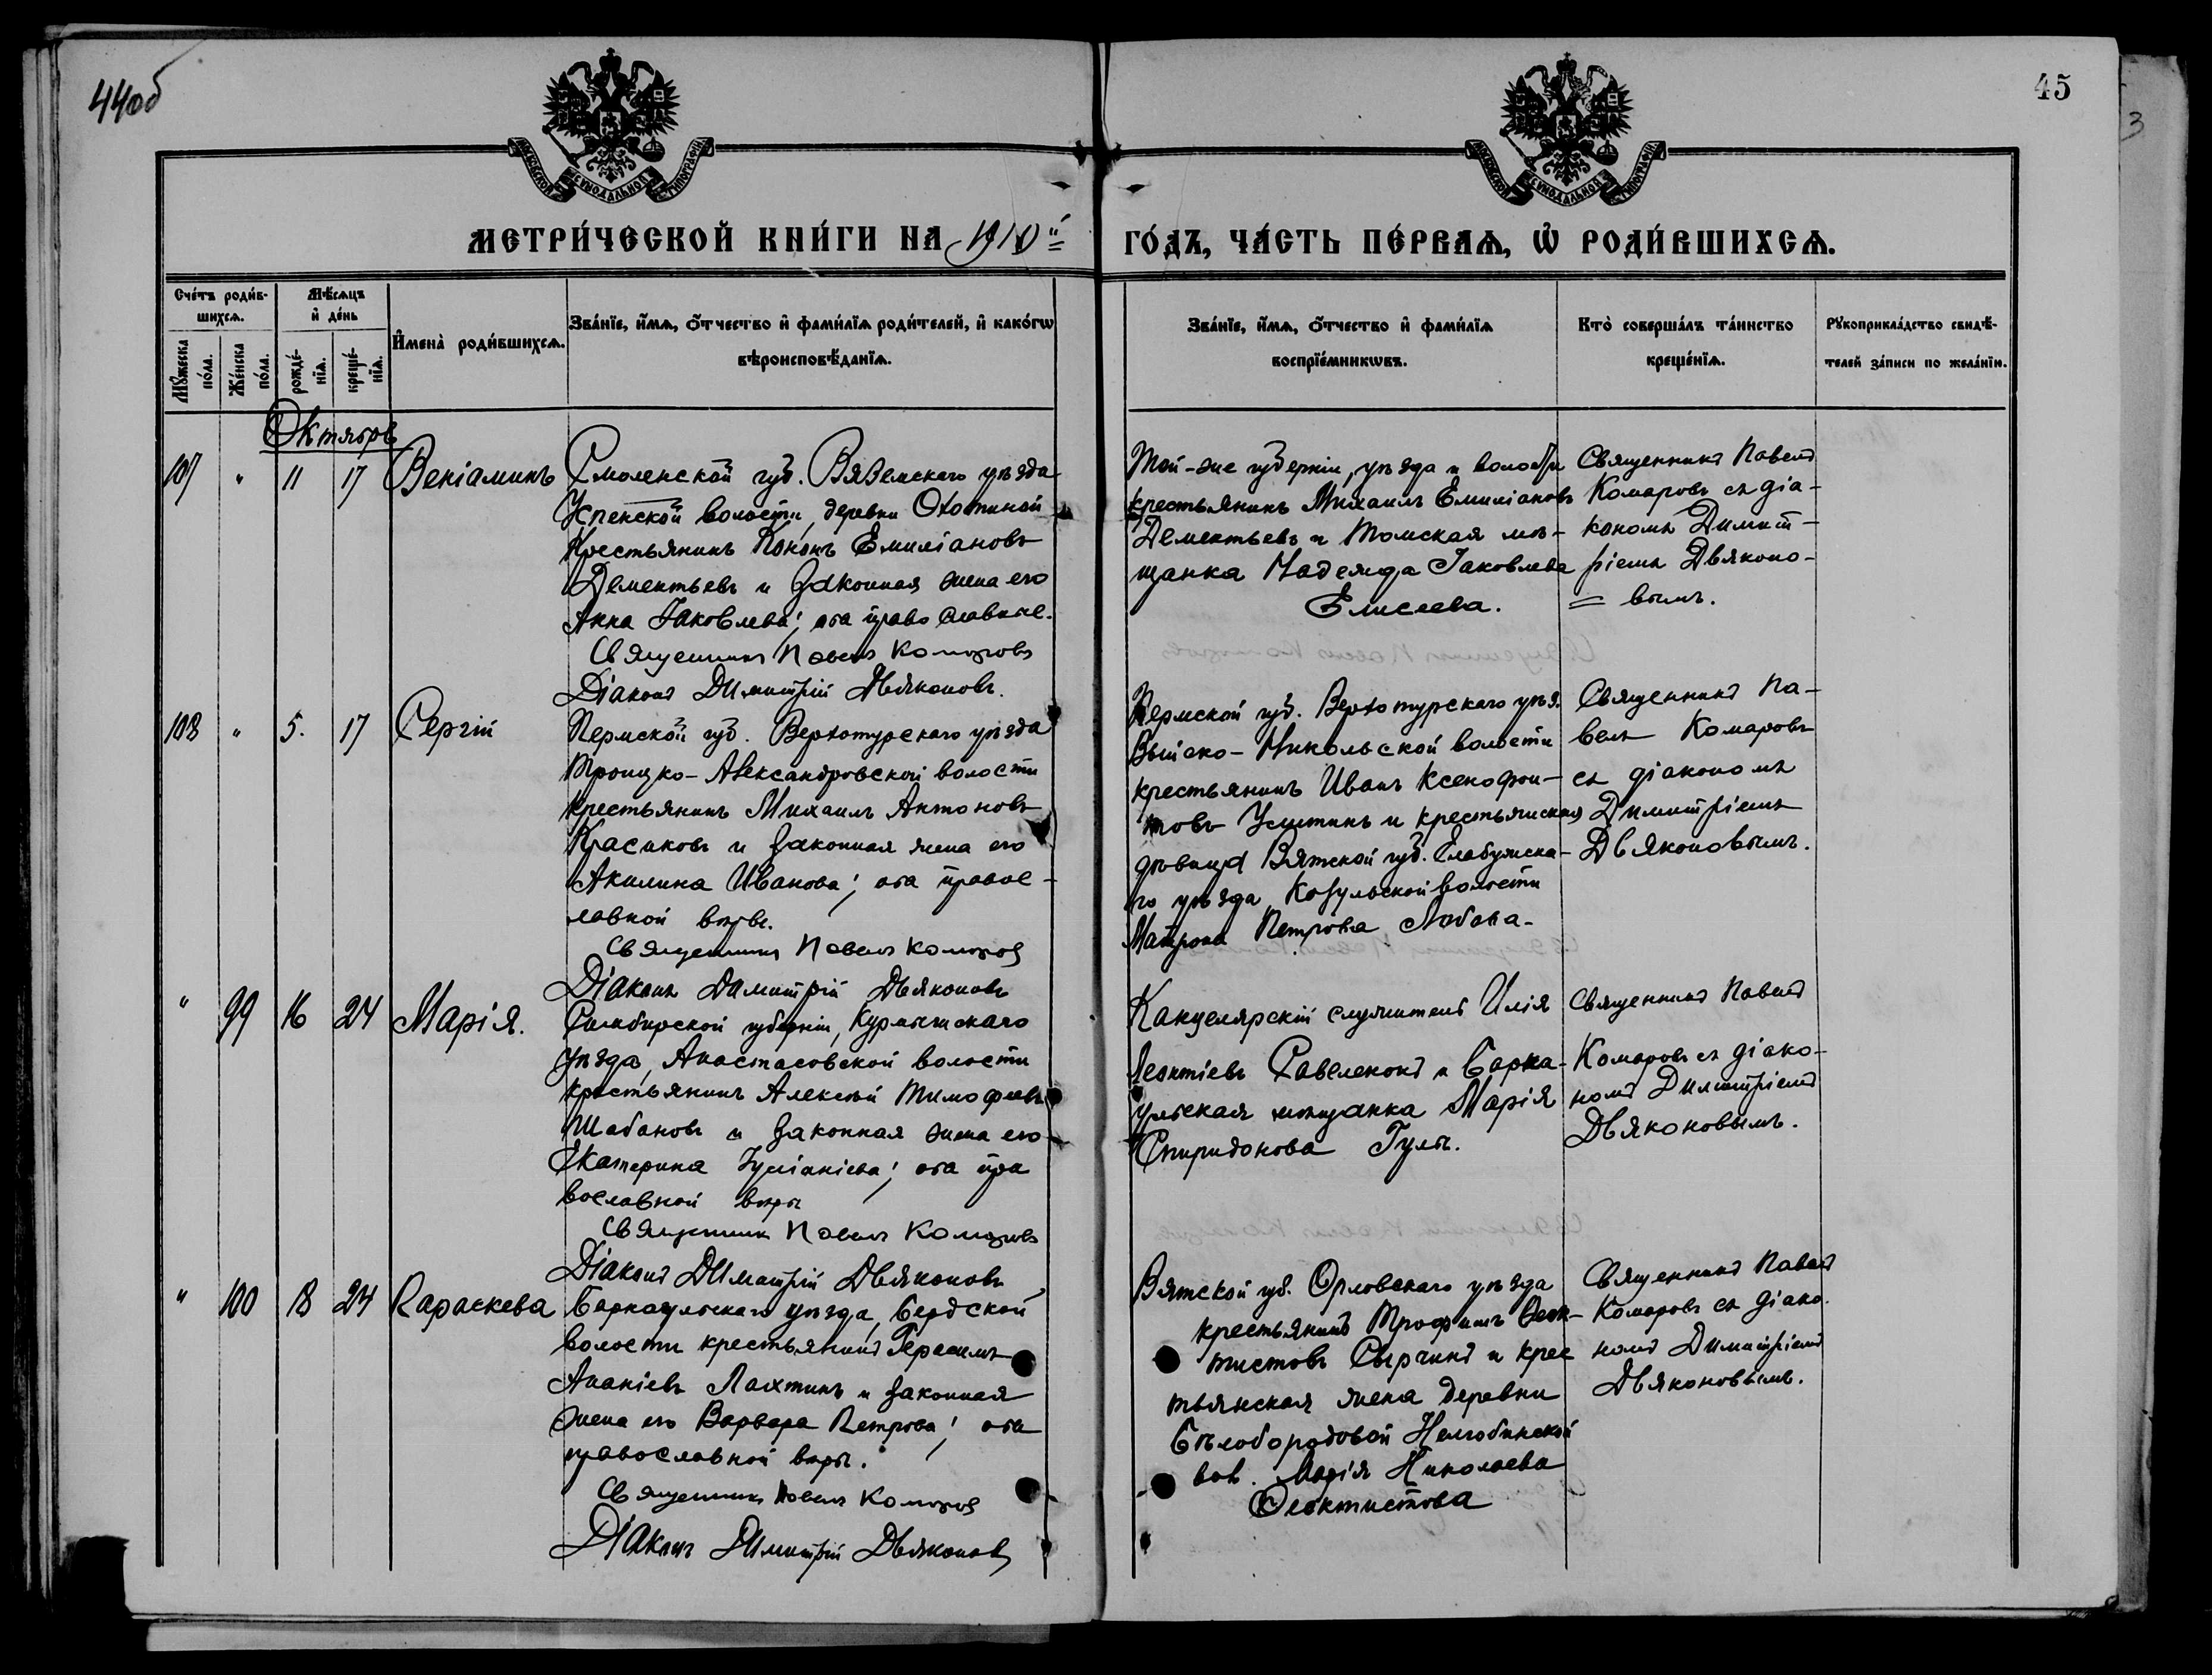 44об
45
3
МОСКОВСКОЙ СѴНОДАЛЬНОЙ ТИПОГРАФІИ
МОСКОВСКОЙ СѴНОДАЛЬНОЙ ТИПОГРАФІИ
МЕТРИ́ЧЕСКОЙ КНИ́ГИ НА 1910й
ГО́ДЪ, ЧА́СТЬ ПЕ́РВАѦ, Ѡ҆ РОДИ́ВШИХСѦ.
Сче́тъ роди́в-
шихсѧ.
Мꙋ́жеска
по́ла.
Же́нска
по́ла.
Мѣ́сѧцъ
и҆ де́нь
рожде́-
нїѧ.
креще́-
нїѧ.
И҆мена̀ роди́вшихсѧ.
Зва́нїе, и҆́мѧ, о҆́тчество и҆ фами́лїѧ роди́телей, и҆ како́гѡ
вѣроисповѣ́данїѧ.
Зва́нїе, и҆́мѧ, о҆́тчество и҆ фами́лїѧ
воспрїе́мникѡвъ.
Кто̀ соверша́лъ та́инство
креще́нїѧ.
Рꙋкоприкла́дство свидѣ́-
телей за́писи по жела́нїю.
Октябрь
107 " 11 17 Веніаминъ
Смоленской губ. Вяземскаго уѣзда
Успенской волости, деревни Охотиной
Крестьянинъ Кононъ Емиліановъ
Дементьевъ и законная жена его
Анна Іаковлева; оба православные.
Священникъ Павелъ Комаровъ
Діаконъ Димитрій Дьяконовъ.
Той-же губерніи, уѣзда и волости
крестьянинъ Михаилъ Емиліановъ
Дементьевъ и Томская мѣ-
щанка Надежда Іаковлева
Елисеева.
Священникъ Павелъ
Комаровъ съ діа-
кономъ Димит-
ріемъ Дьяконо-
= вымъ.
108 " 5. 17 Сергій
Пермской губ. Верхотурскаго уѣзда
Троицко-Александровской волости
крестьянинъ Михаилъ Антоновъ
Красиковъ и законная жена его
Акилина Иванова; оба правос-
лавной вѣры.
Священникъ Павелъ Комаровъ
Діаконъ Димитрій Дьяконовъ
Пермской губ. Верхотурскаго уѣз.
Выйско-Никольской волости
крестьянинъ Иванъ Ксенофон-
товъ Устинъ и крестьянская
дѣвица Вятской губ. Елабужска-
го уѣзда, Козульской волости
Матрона Петрова
Священникъ Па-
велъ Комаровъ
съ діакономъ
Димитріемъ
Дьяконовымъ.
" 99 16 24 Марія.
Симбирской губерніи, Курмышскаго
уѣзда, Анастасовской волости
крестьянинъ Алексѣй Тимофеевъ
Шабановъ и законная жена его
Екатерина Іуліаніева; оба пра
вославной вѣры
Священникъ Павелъ Комаровъ
Діаконъ Димитрій Дьяконовъ
Канцелярскій служитель Илія
Леонтіевъ Савеленокъ и Барна-
ульская мѣщанка Марія
Спиридонова Гулы.
Священникъ Павелъ
Комаровъ съ діако-
номъ Димитріемъ
Дьяконовымъ.
" 100 18 24 Параскева
Барнаульскаго уѣзда, Бердской
волости крестьянинъ Герасимъ
Ананіевъ Лахтинъ и законная
жена его Варвара Петрова; оба
православной вѣры.
Священникъ Павелъ Комаровъ
Діаконъ Димитрій Дьяконовъ
Вятской губ. Орловскаго уѣзда
крестьянинъ Трофимъ Ѳеок-
тистовъ Сырчинъ и крес
тьянская жена деревни
Бѣлобородовой
вол. Марія Николаева
Ѳеоктистова
Священникъ Павелъ
Комаровъ съ діако-
номъ Димитріемъ
Дьяконовымъ.